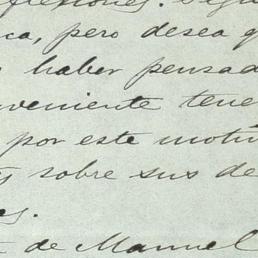 ca, pero desea
haber pensad
veniente tene
por este moti
sobre sus de
es.
de Manuel